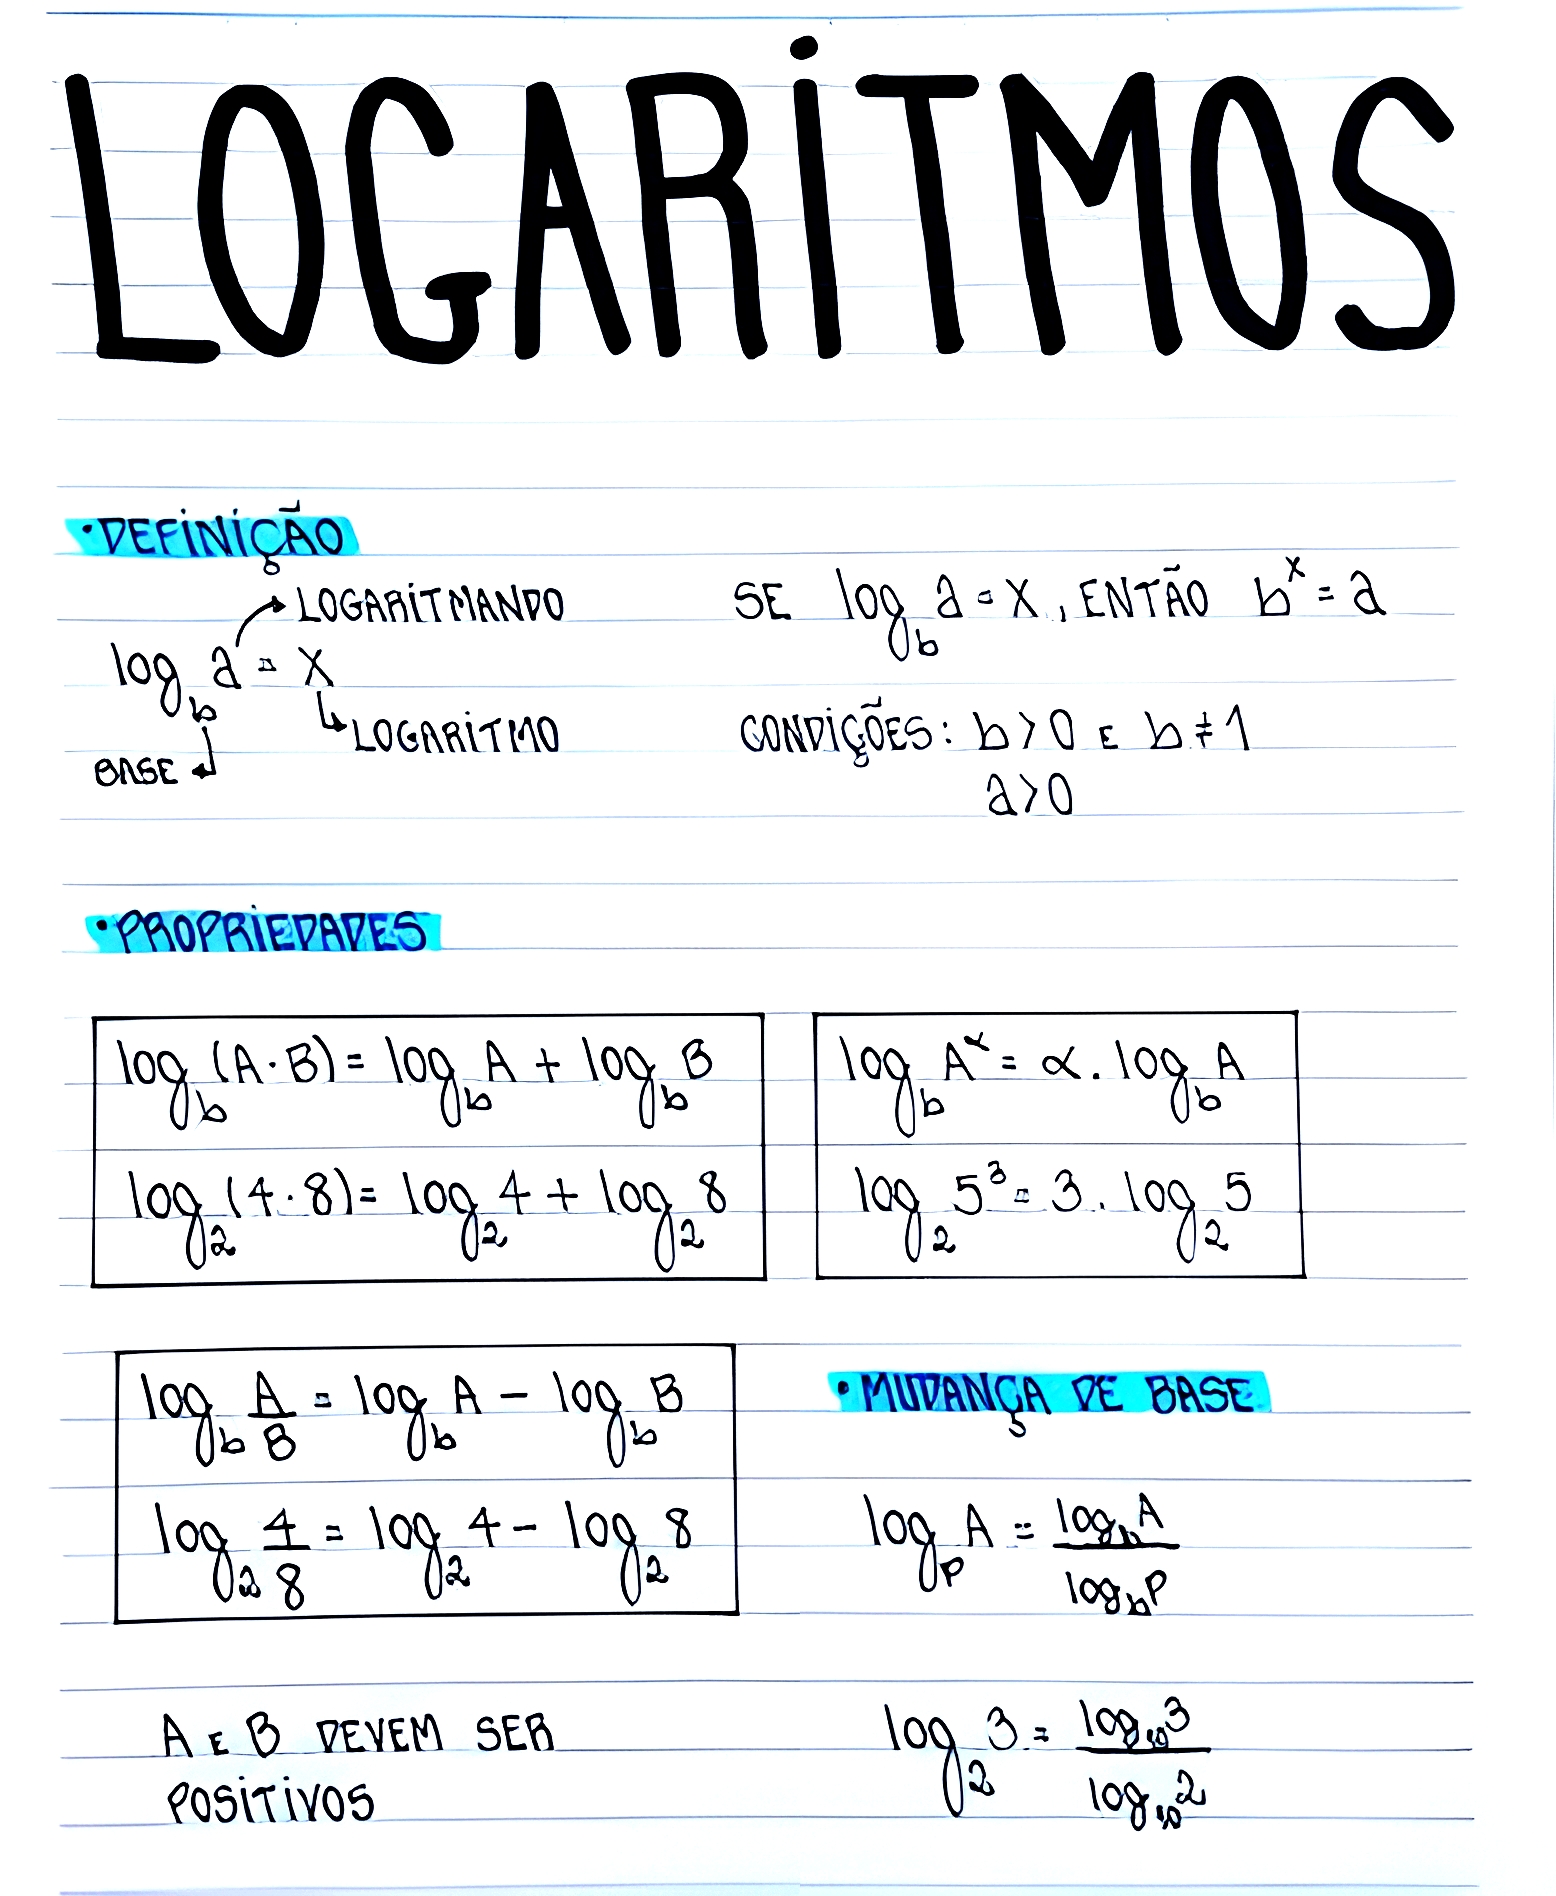 LOGARITMOS
• DEFINIÇÃO
LOGARITMANDO
log_b a = x
LOGARITMO
BASE
SE log_b a = x, ENTÃO b^x = a
CONDIÇÕES: b > 0 E b ≠ 1
a > 0
• PROPRIEDADES
log_b (A · B) = log_b A + log_b B
log_2 (4 · 8) = log_2 4 + log_2 8
log_b A^α = α . log_b A
log_2 5^3 = 3 . log_2 5
log_b A/B = log_b A - log_b B
log_2 4/8 = log_2 4 - log_2 8
A E B DEVEM SER
POSITIVOS
• MUDANÇA DE BASE
log_p A = log_b A / log_b p
log_2 3 = log_10 3 / log_10 2